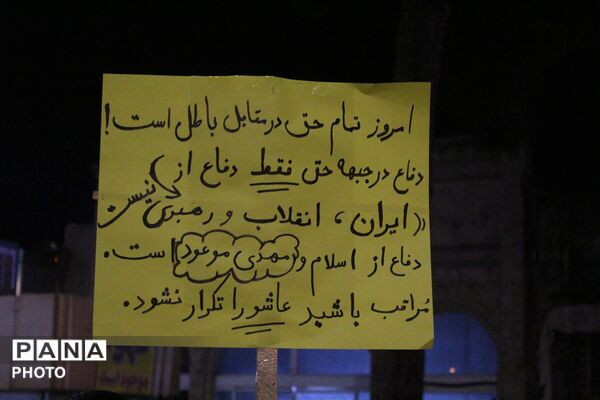 امروز تمام حق در مقابل باطل است!
دفاع در جبهه حق فقط دفاع از
((ایران، انقلاب و رهبری)) نیست
دفاع از اسلام و مهدی موعود است.
مُراقب باشید عاشورا تکرار نشود.
PANA
PHOTO